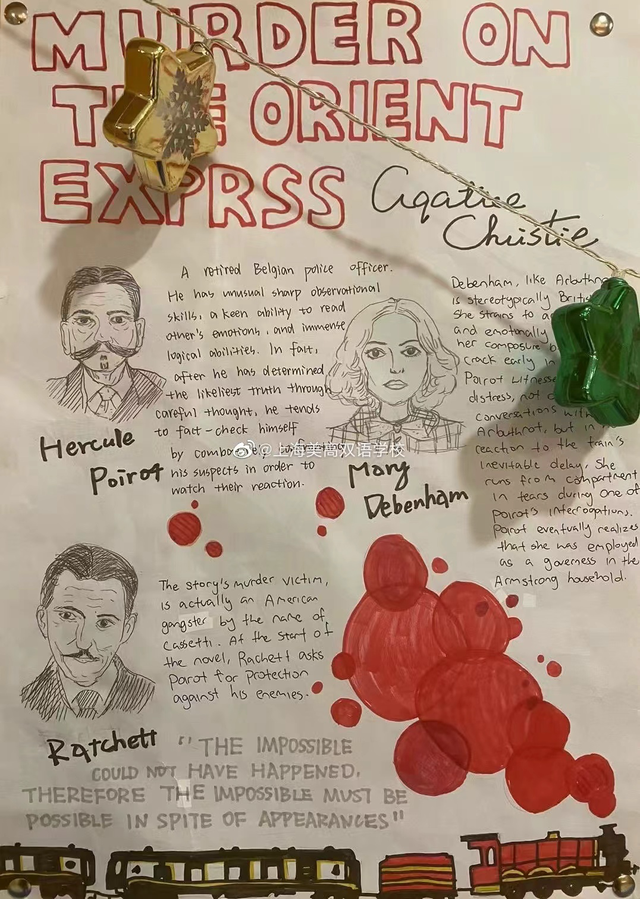 MURDER ON
THE ORIENT
EXPRSS
Agatha
Christie
A retired Belgian police officer.
He has unusual sharp observational
skills, a keen ability to read
other's emotions, and immense
logical abilities. In fact,
after he has determined
the likeliest truth through
careful thought, he tends
to fact-check himself
by
his suspects in order to
watch their reaction.
Hercule
Poirot
Debenham, like Arbuthno
is stereotypically Briti
She strains to a
and emotionally
her composure b
crack early in
Poirot witnesse
distress, not
conversations with
Arbuthnot, but in
reaction to the train's
inevitable delay. She
runs from compartment
in tears during one of
Poirot's interrogations.
Poirot eventually realizes
that she was employed
as a governess in the
Armstrong household.
Mary
Debenham
@上海美高双语学校
The story's murder victim,
is actually an American
gangster by the name of
Cassetti. At the start of
the novel, Rachett asks
Parot for protection
against his enemies.
Ratchett
"THE IMPOSSIBLE
COULD NOT HAVE HAPPENED,
THEREFORE THE IMPOSSIBLE MUST BE
POSSIBLE IN SPITE OF APPEARANCES"